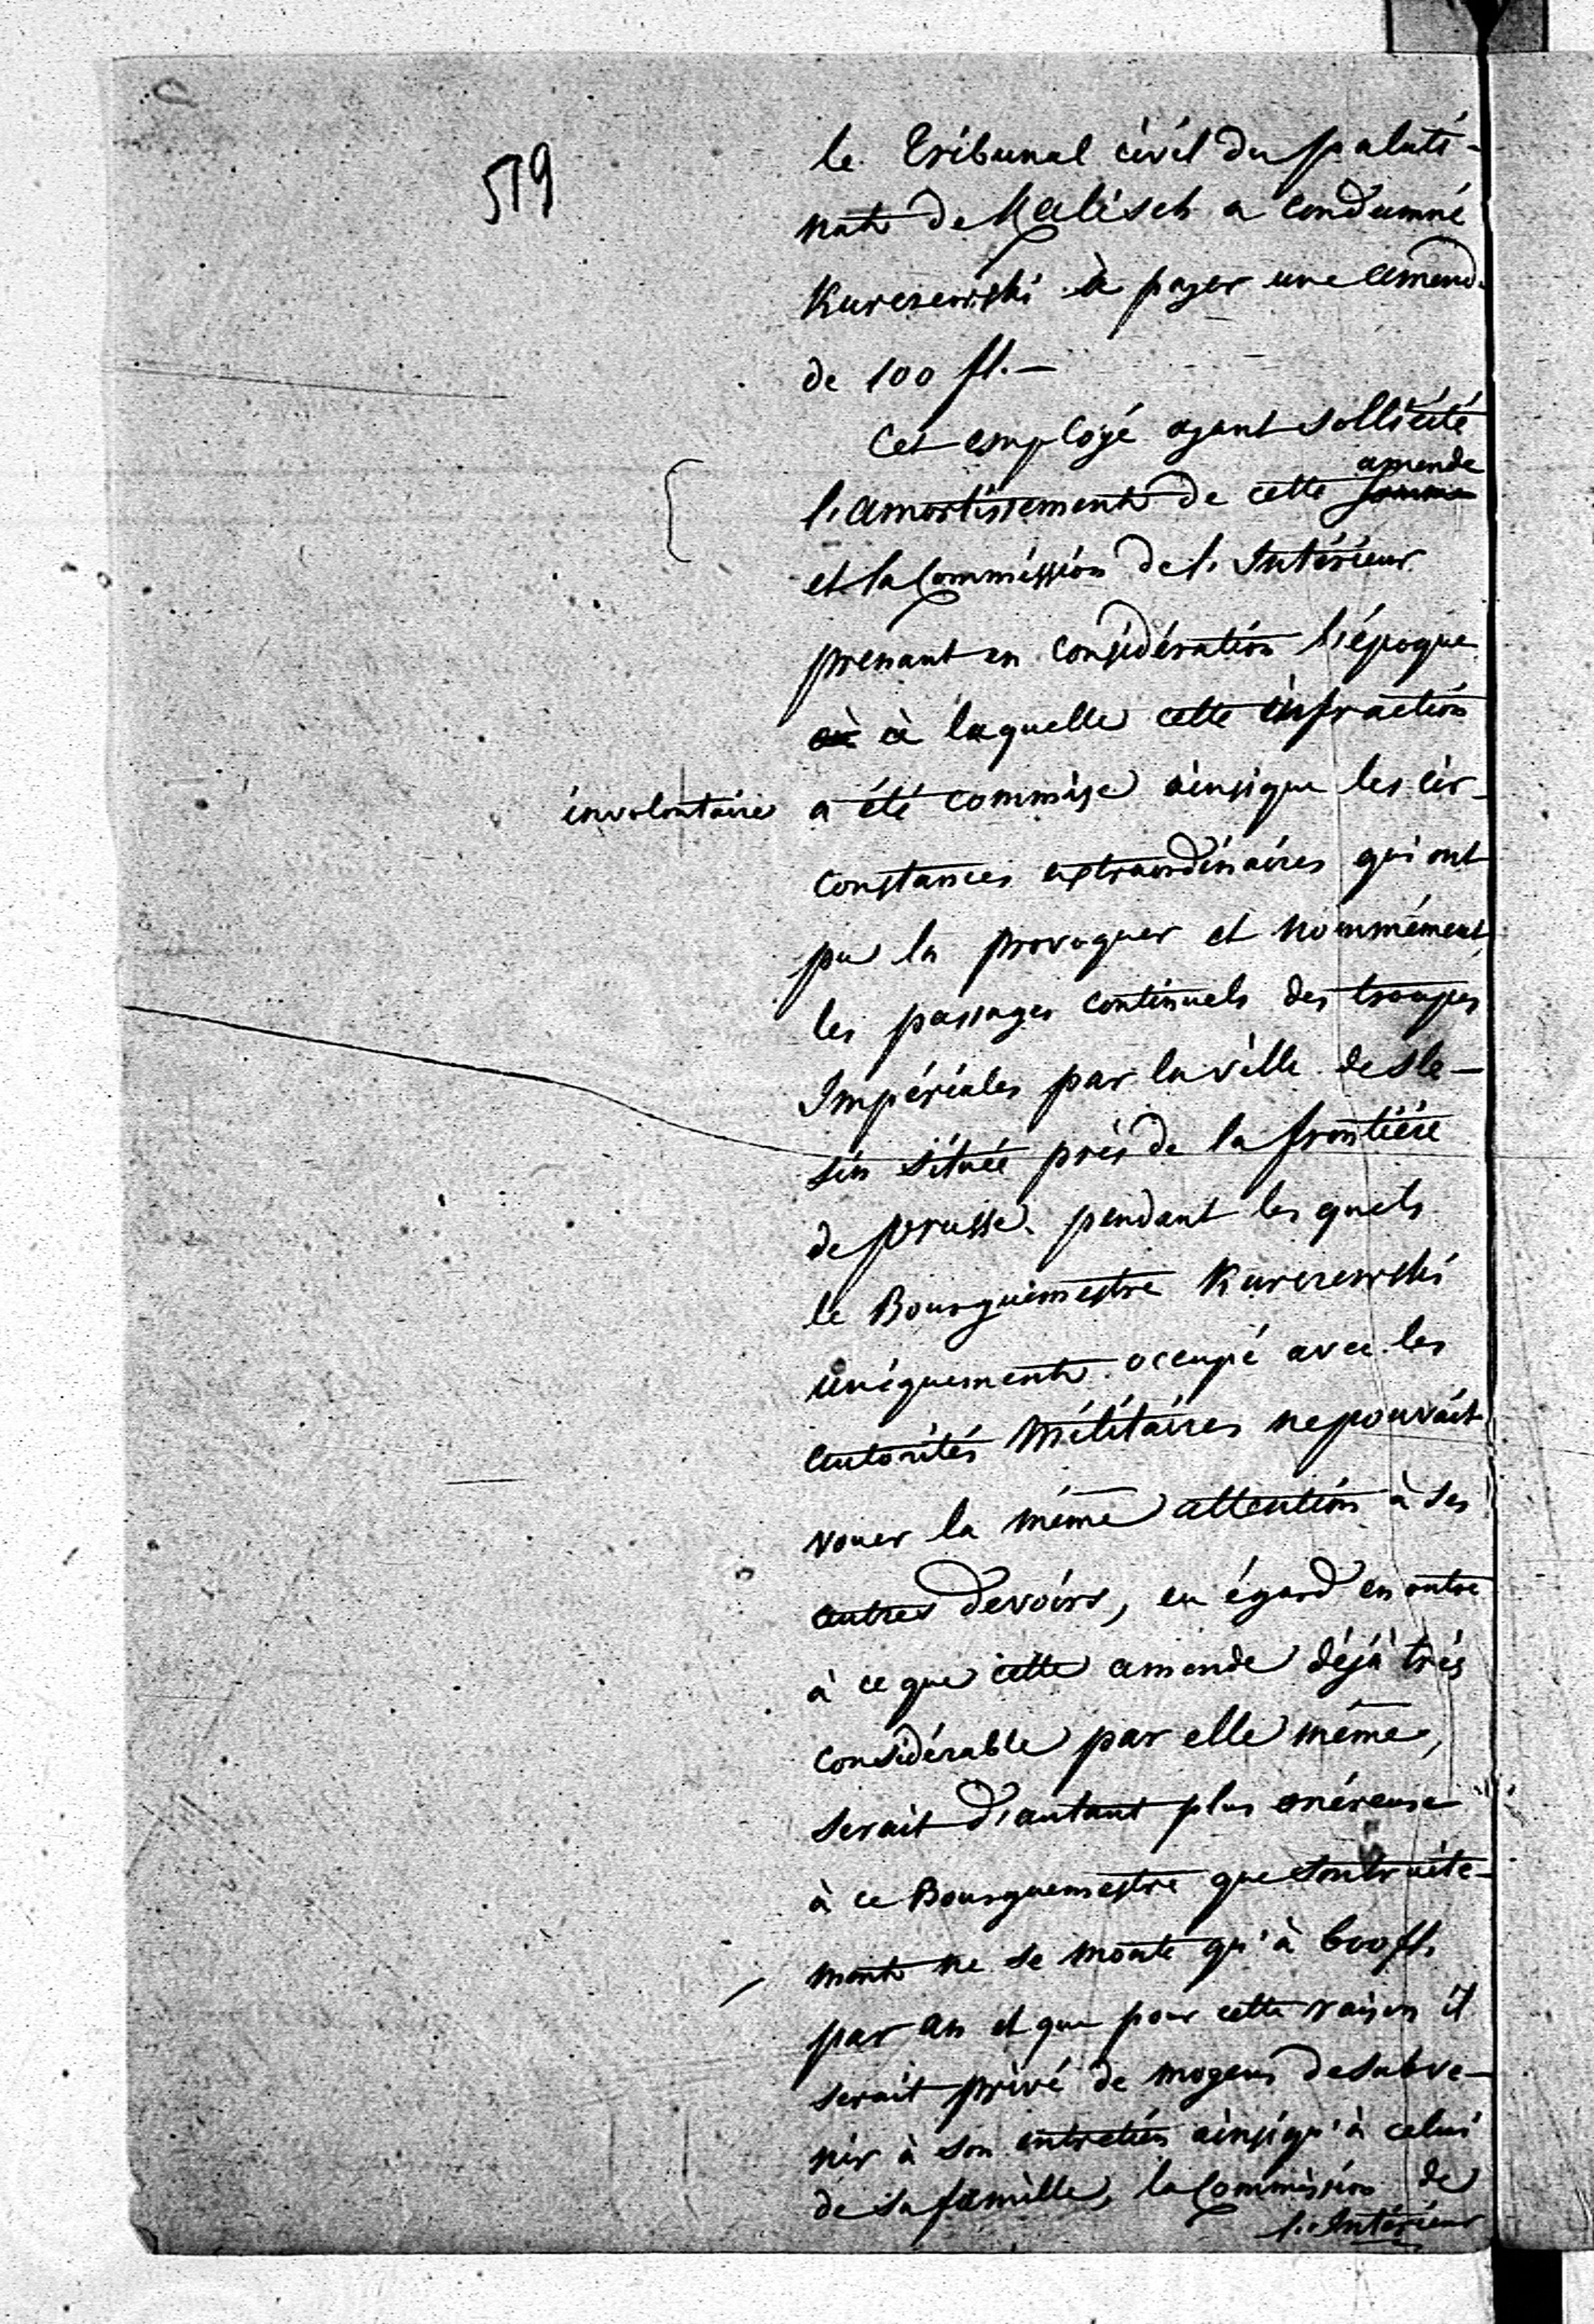 579
le Tribunal civil du palati-
nat de Kalisch a condamné
Kurczewski à payer une amend.
de 100 fl.—
Cet employé ayant sollicité
amende
l'amortissement de cette somme
et la Commission de l'Intérieur
prenant en considération l'époque
où à laquelle cette infraction
involontaire a été commise ainsique les cir-
constances extraordinaires qui ont
pu la provoquer et nommément
les passages continuels des troupes
Impériales par la ville de Sle-
sin située près de la frontière
de prusse. pendant les quels
le Bourguemestre Kurczewski
uniquement occupé avec les
autorités militaires ne pouvait
vouer la même attention à ses
autres devoirs, eu égard en outre
à ce que cette amende déjà très
considérable par elle même,
serait d'autant plus onéreuse
à ce Bourguemestre que son traite-
ment ne se monte qu'à 600 fl.
par an et que pour cette raison il
serait privé de moyens de subve-
nir à son entretien ainsiqu'à celui
de sa famille, la Commission de
l'Intérieur